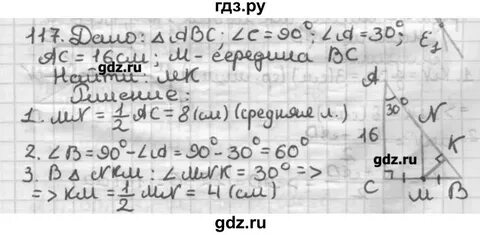 гдз.ру
117. Дано: △ABC; ∠C=90°; ∠A=30°;
AC=16см; M-середина BC
Найти: MK
Решение:
1. MN=1/2 AC=8(см) (средняя л.)
2. ∠B=90°-∠A=90°-30°=60°
3. В △NKM: ∠MNK=30°=>
=> KM=1/2 MN=4(см)
E₁
A
30°
N
16
K
C
M
B
gdz.ru
gdz.ru
gdz.ru
gdz.ru